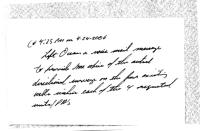 @ 4:25 PM on 4-24-2006
left Oscar a voice mail message
to provide me copies of the actual
directional surveys on the four existing
wells within each of the 4 requested
units/PA's.